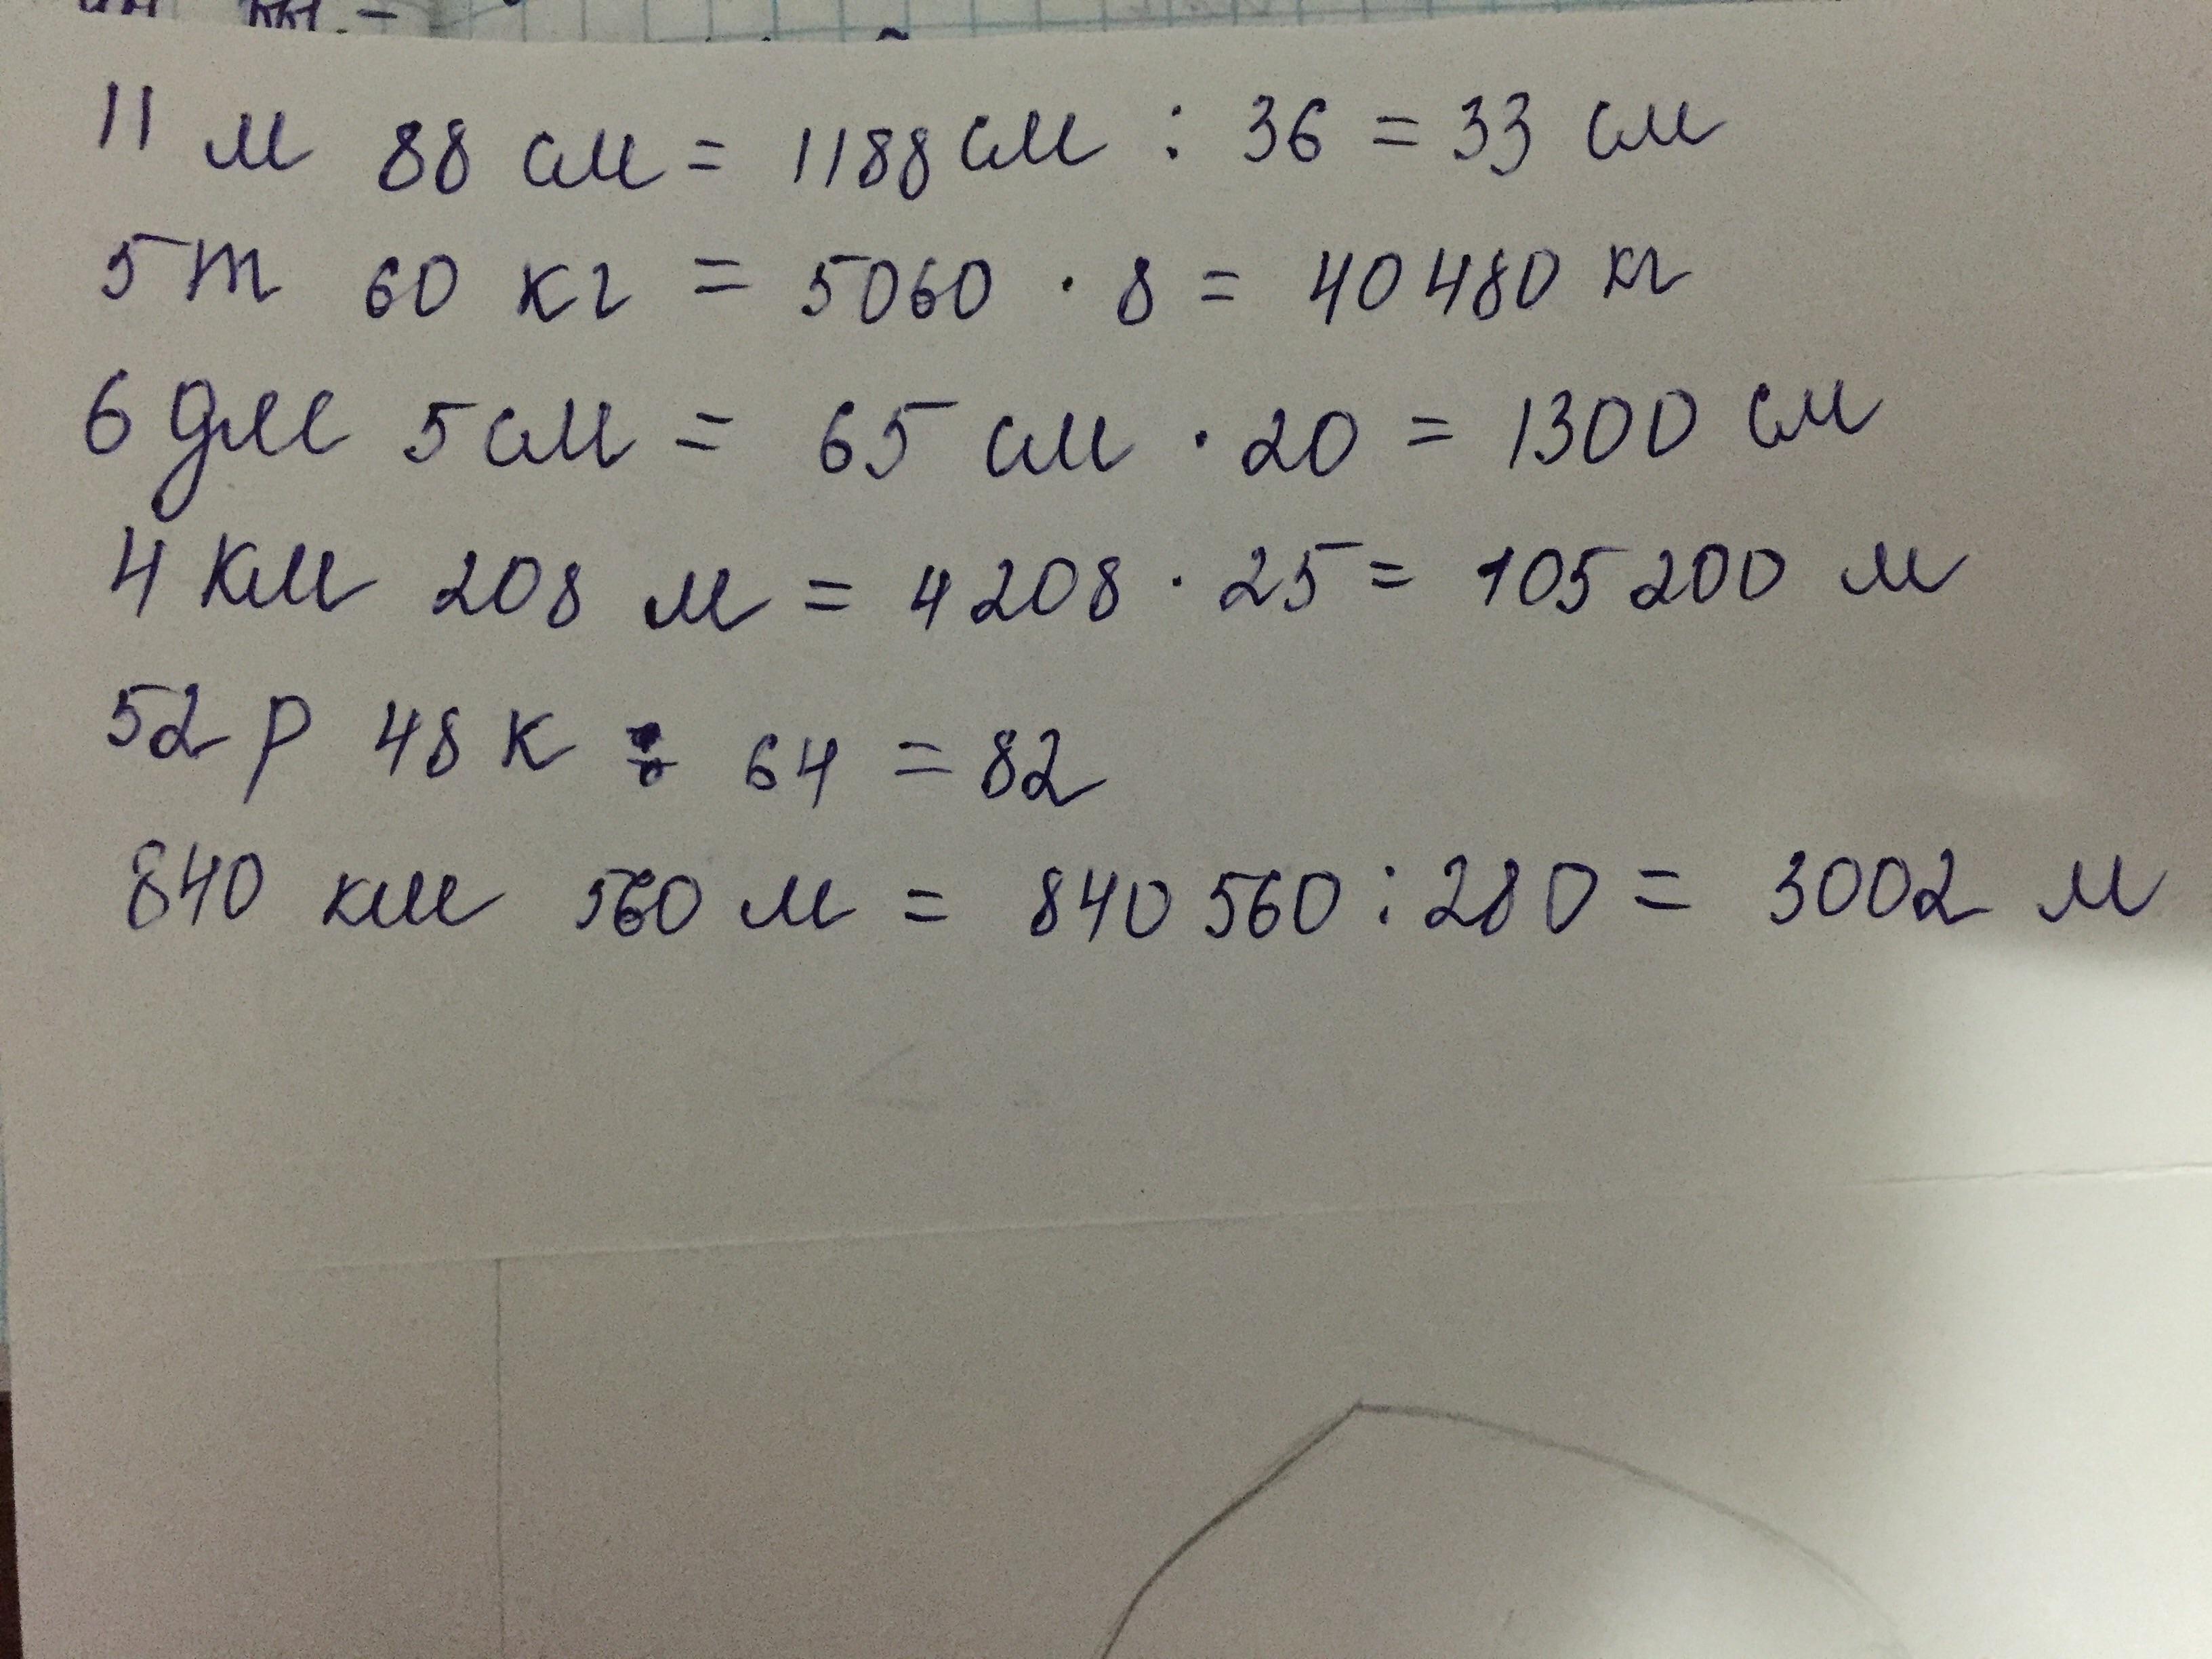 11 м 88 см = 1188 см : 36 = 33 см
5 т 60 кг = 5060 · 8 = 40480 кг
6 дм 5 см = 65 см · 20 = 1300 см
4 км 208 м = 4208 · 25 = 105200 м
52 р 48 к : 64 = 82
840 км 560 м = 840560 : 280 = 3002 м